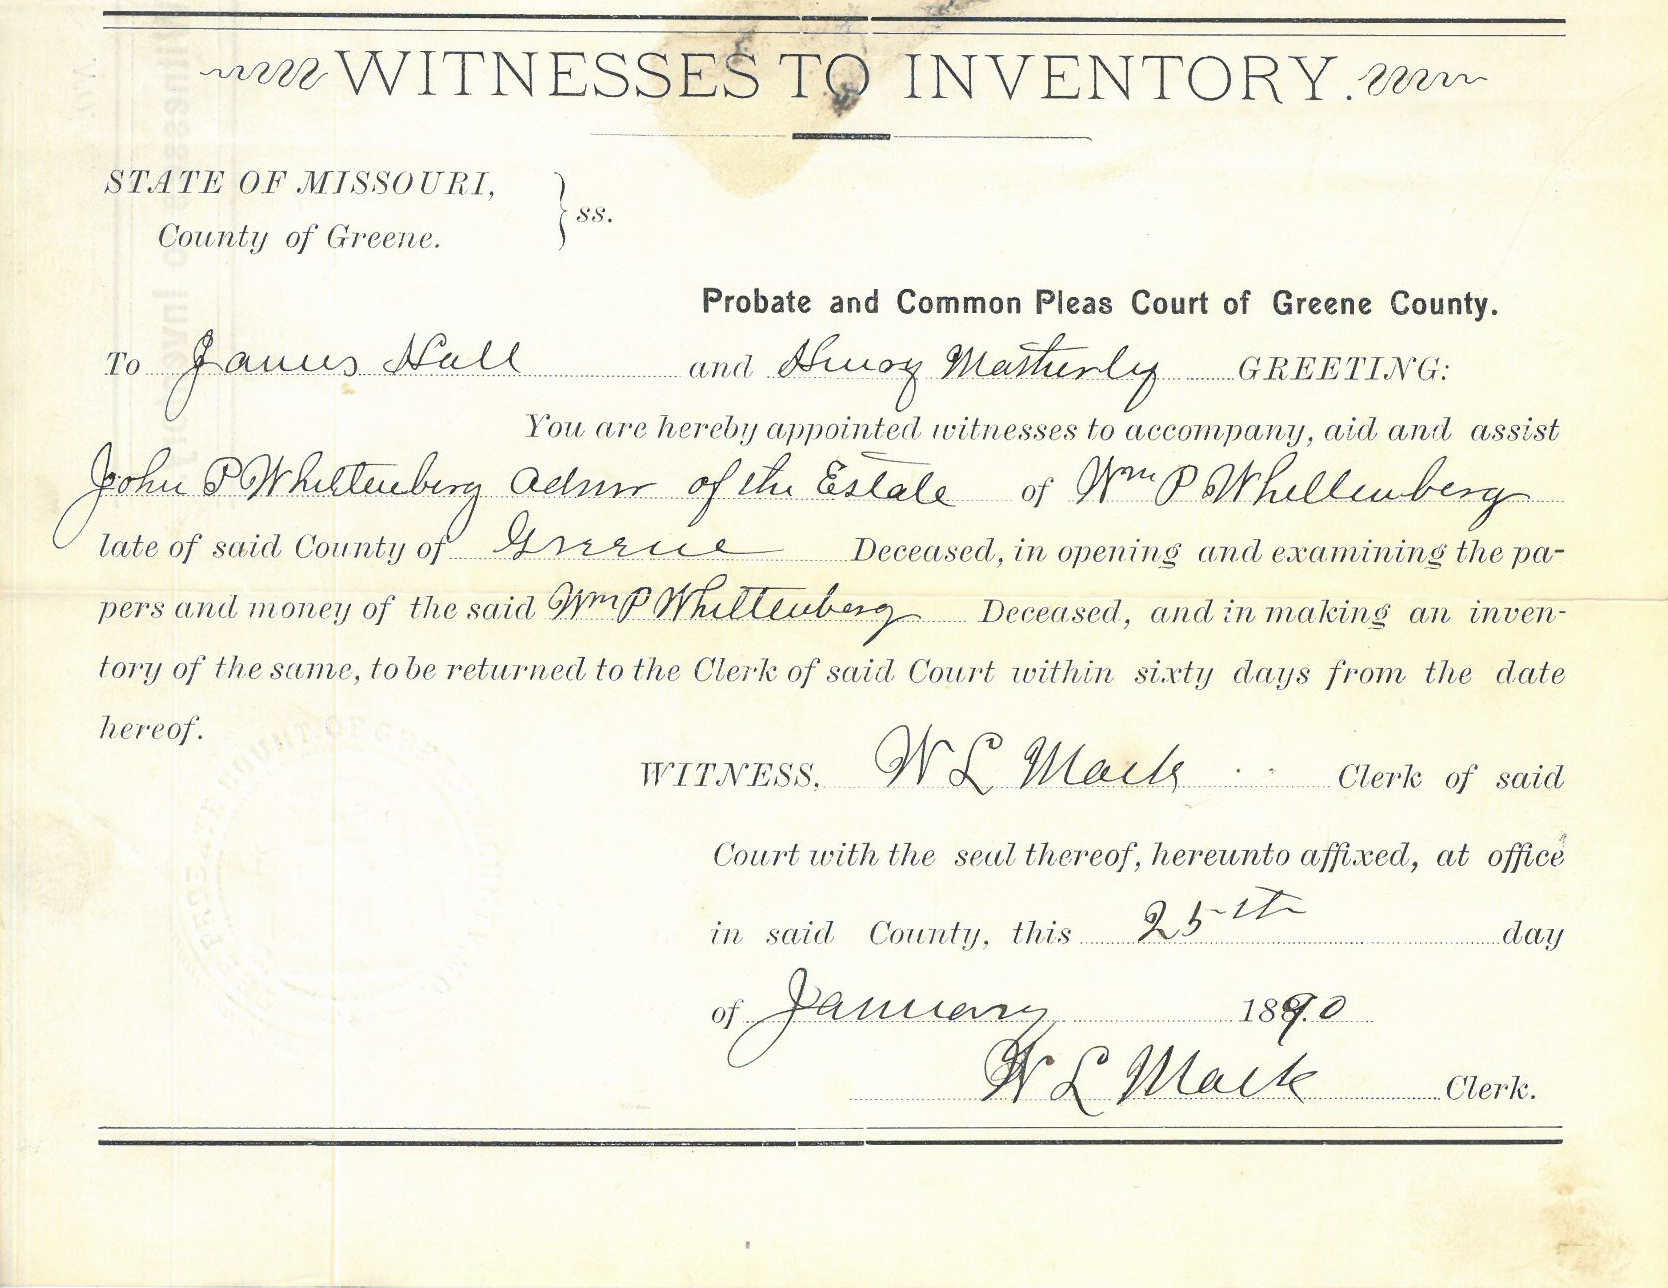 WITNESSES TO INVENTORY.
STATE OF MISSOURI,
County of Greene.
} ss.
Probate and Common Pleas Court of Greene County.
To James Hall and Henry Matherly GREETING:
You are hereby appointed witnesses to accompany, aid and assist
John P Whittenberg Admr of the Estate of Wm P Whittenberg
late of said County of Greene Deceased, in opening and examining the pa-
pers and money of the said Wm P Whittenberg Deceased, and in making an inven-
tory of the same, to be returned to the Clerk of said Court within sixty days from the date
hereof.
WITNESS, W L Mack Clerk of said
Court with the seal thereof, hereunto affixed, at office
in said County, this 25th day
of January 1890
W L Mack Clerk.